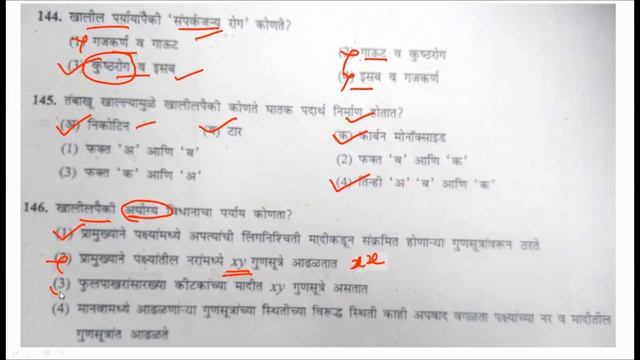 144. खालील पर्यायांपैकी 'संपर्कजन्य रोग' कोणते?
(1) गजकर्ण व गाऊट (2) गाऊट व कुष्ठरोग
(3) कुष्ठरोग व इसब (4) इसब व गजकर्ण
145. तंबाखू खाल्ल्यामुळे खालीलपैकी कोणते घातक पदार्थ निर्माण होतात?
(अ) निकोटिन (ब) टार (क) कार्बन मोनॉक्साइड
(1) फक्त 'अ' आणि 'ब' (2) फक्त 'ब' आणि 'क'
(3) फक्त 'क' आणि 'अ' (4) तिन्ही 'अ' 'ब' आणि 'क'
146. खालीलपैकी अयोग्य विधानाचा पर्याय कोणता?
(1) प्रामुख्याने पक्ष्यांमध्ये अपत्यांची लिंगनिश्चिती मादीकडून संक्रमित होणाऱ्या गुणसूत्रांवरून ठरते
(2) प्रामुख्याने पक्ष्यांतील नरांमध्ये xy गुणसूत्रे आढळतात xx
(3) फुलपाखरांसारख्या कीटकांच्या मादीत xy गुणसूत्रे असतात
(4) मानवामध्ये आढळणाऱ्या गुणसूत्रांच्या स्थितीच्या विरूद्ध स्थिती काही अपवाद वगळता पक्ष्यांच्या नर व मादीतील
गुणसूत्रांत आढळते